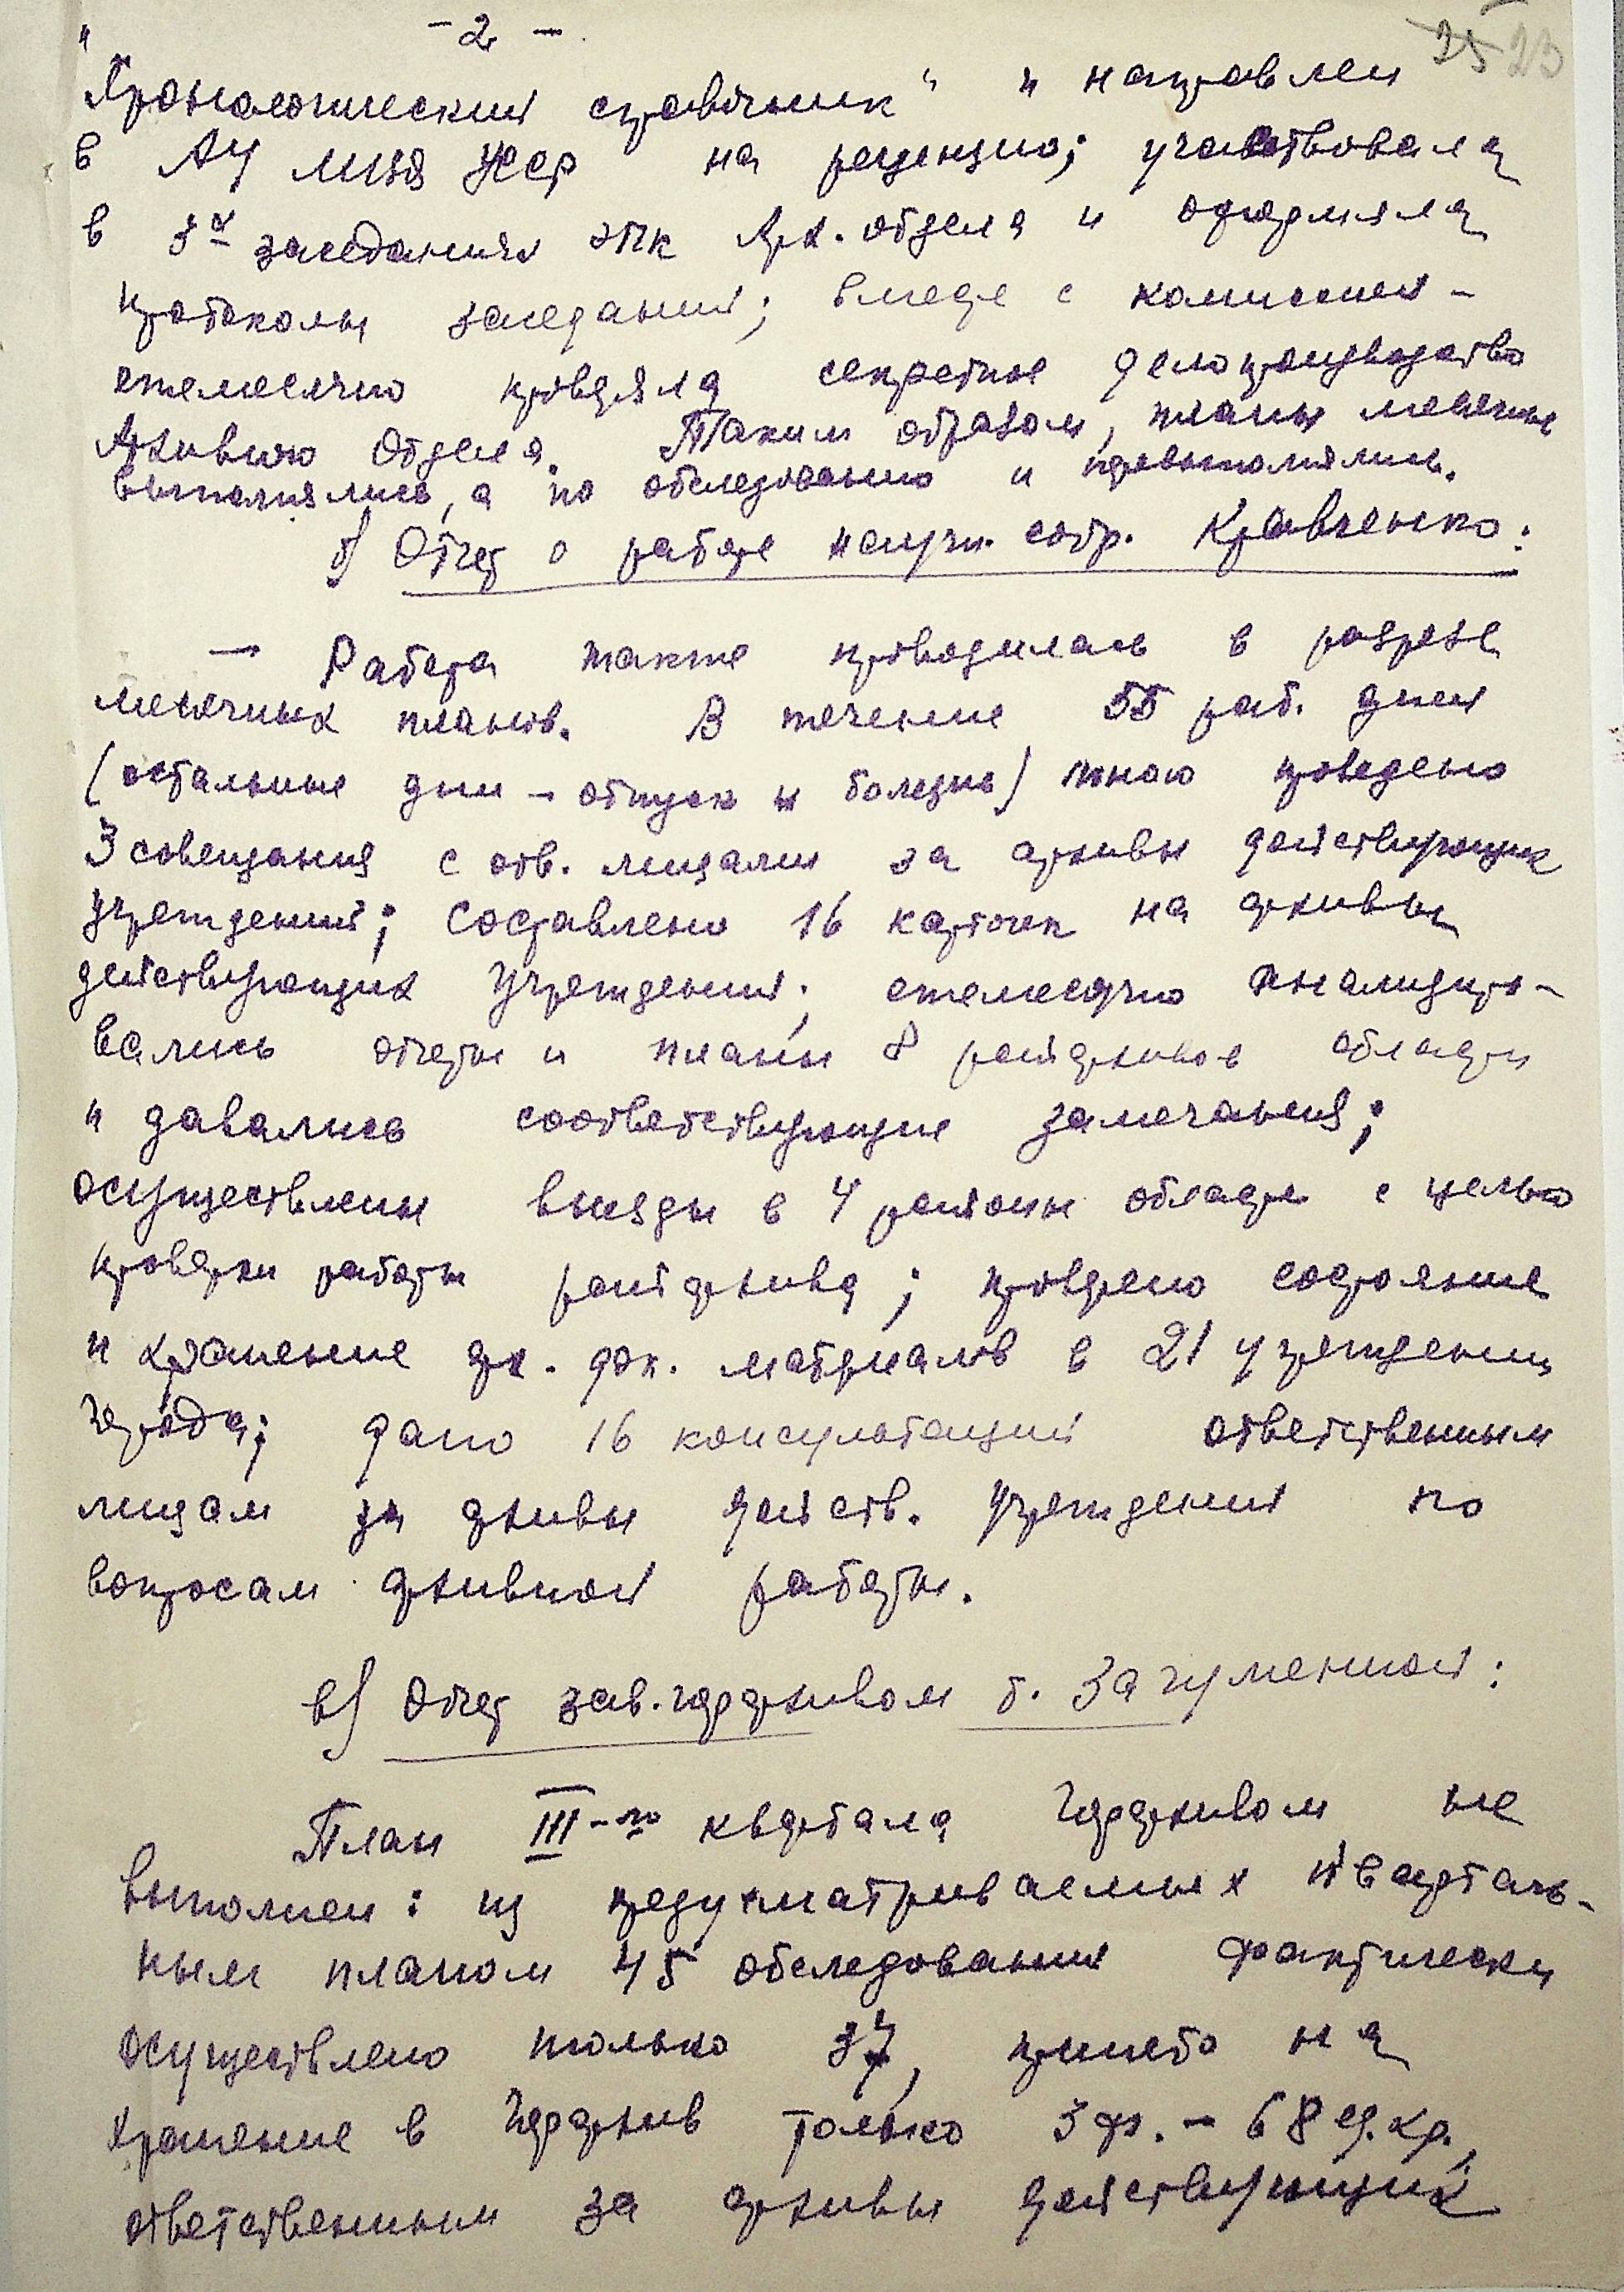 - 2 -
25 23
"Хронологический справочник" и направлен
в АУ МВД УССР на рецензию; участвовала
в 3х заседаниях ЭПК Арх. отдела и оформляла
протоколы заседаний; вместе с комиссией -
ежемесячно проверяла секретное делопроизводство
Архивного Отдела. Таким образом, планы месячные
выполнялись, а по обследованию и перевыполнялись.
б) Отчет о работе научн. сотр. Кравченко:
— Работа также проводилась в разрезе
месячных планов. В течение 55 раб. дней
(остальные дни - отпуск и болезнь) мною проведено
3 совещания с отв. лицами за архивы действующих
учреждений; составлено 16 карточек на архивы
действующих учреждений; ежемесячно анализиро-
вались отчеты и планы 8 райархивов области
и давались соответствующие замечания;
осуществлены выезды в 4 районы области с целью
проверки работы райархива; проверено состояние
и хранение арх. док. материалов в 21 учреждении
города; дано 16 консультаций ответственным
лицам за архивы действ. учреждений по
вопросам архивной работы.
в) Отчет зав. горархивом т. Загуменной:
План III-го квартала Горархивом не
выполнен: из предусматриваемых кварталь-
ным планом 45 обследований фактически
осуществлено только 37, принято на
хранение в Горархив только 3 ф. - 68 ед. хр.,
ответственным за архивы действующих